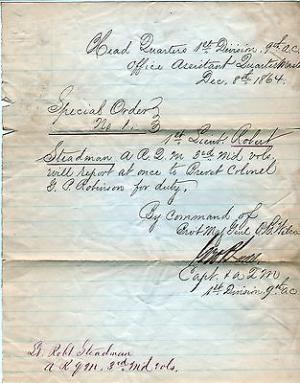 Head Quarters 1st Division, 9th A.C.
Office Assistant Quarter Master
Dec. 8th 1864.
Special Order
No 1.
1st Lieut. Robert
Steadman A R Q M 3rd Md vols.
will report at once to Brevet Colonel
G. P. Robinson for duty.
By Command of
Brvt Maj Genl
Capt. & A Q M
1st Division 9th A C
Lt. Robt Steadman
A R Q M. 3rd Md vols.